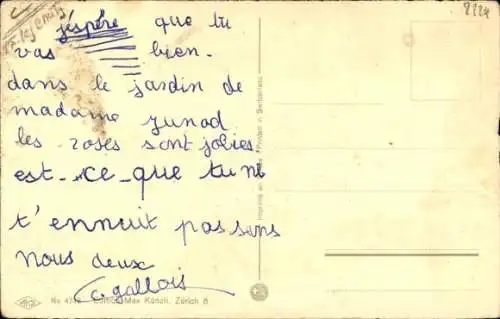 2224
j'espère que tu
vas bien.
dans le jardin de
madame Junod
les roses sont jolies
est-ce-que tu ne
t'ennuit pas sans
nous deux
C. gallois
Imprimé en Suisse / Printed in Switzerland
No 4719 Edition Max Künzli, Zürich 8